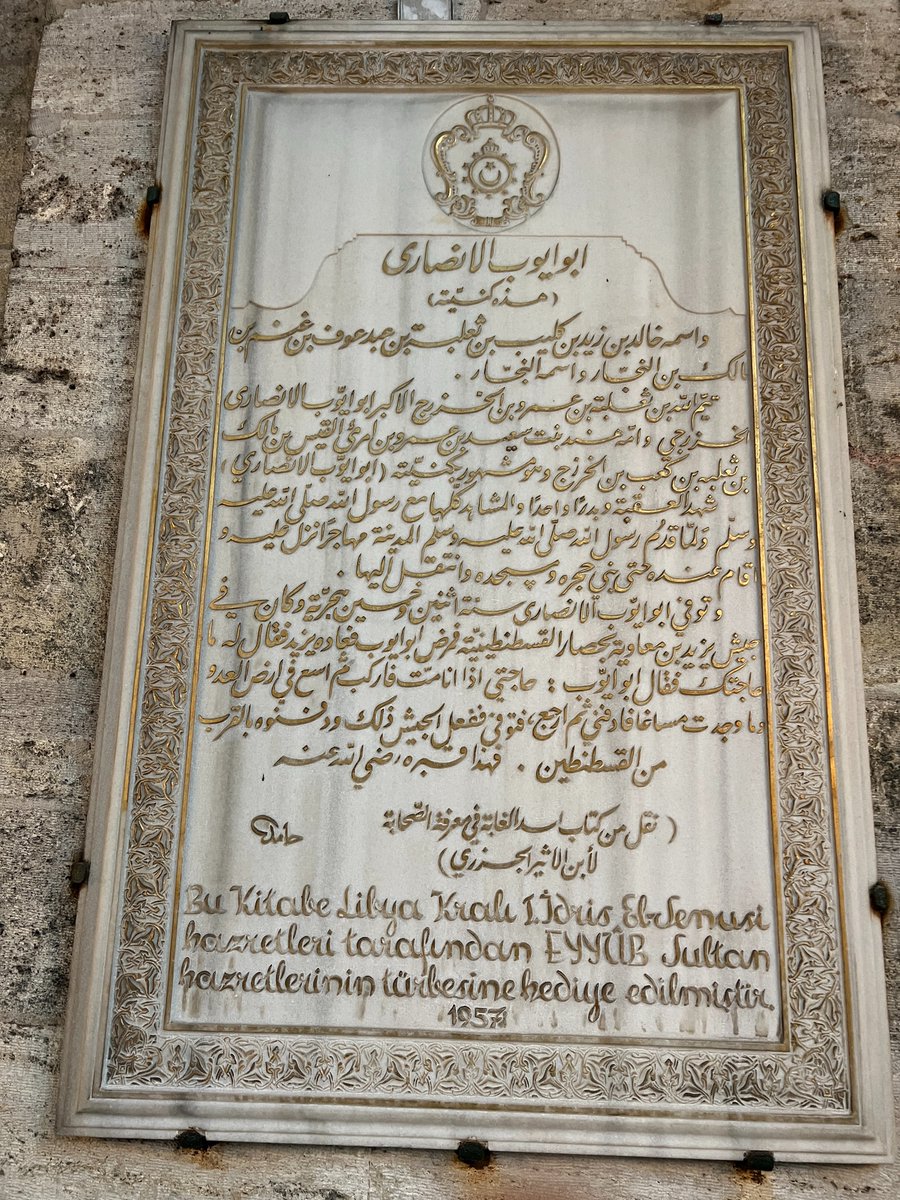 ابو ايوب الانصارى
(هذه كنيّته)
واسمه خالد بن زيد بن كليب بن ثعلبة بن عبد عوف بن غنم بن
مالك بن النجّار واسمه النجّار .
تيم الله بن ثعلبة بن عمرو بن الخزرج الاكبر ابو ايّوب الانصارى
الخزرجي وامّه هند بنت سعيد بن عمرو بن امرئ القيس بن مالك
بن ثعلبه بن كعب بن الخزرج وهو مشهور بكنيّته (ابو ايّوب الانصاري)
شهد العقبة وبدرًا واحدًا والمشاهد كلها مع رسول الله صلّى الله عليه
وسلّم ولمّا قدم رسول الله صلّى الله عليه وسلم المدينة مهاجرًا نزل عليه و
اقام عنده حتى بنى حجره ومسجده وانتقل اليها .
وتوفي ابو ايّوب الانصارى سنة اثنين وخمسين هجريّة وكان في
جيش يزيد بن معاوية بحصار القسطنطينيّة فمرض ابو ايوب فعاده يزيد فقال له ما
حاجتك فقال ابو ايّوب : حاجتي اذا انا متّ فاركب ثم اسع في ارض العدو
وما وجدت مساغا فادفنّي ثم ارجع، فتوفي ففعل الجيش ذلك ودفنوه بالقرب
من القسطنطين . فهذا قبره رضي الله عنه
(نقل من كتاب اسد الغابة في معرفة الصّحابة
لأبن الاثير الجزري)
حامد
Bu Kitabe Libya Kralı I.İdris Elr Senusi
hazretleri tarafından EYYÛB Sultan
hazretlerinin türbesine hediye edilmiştir.
1957